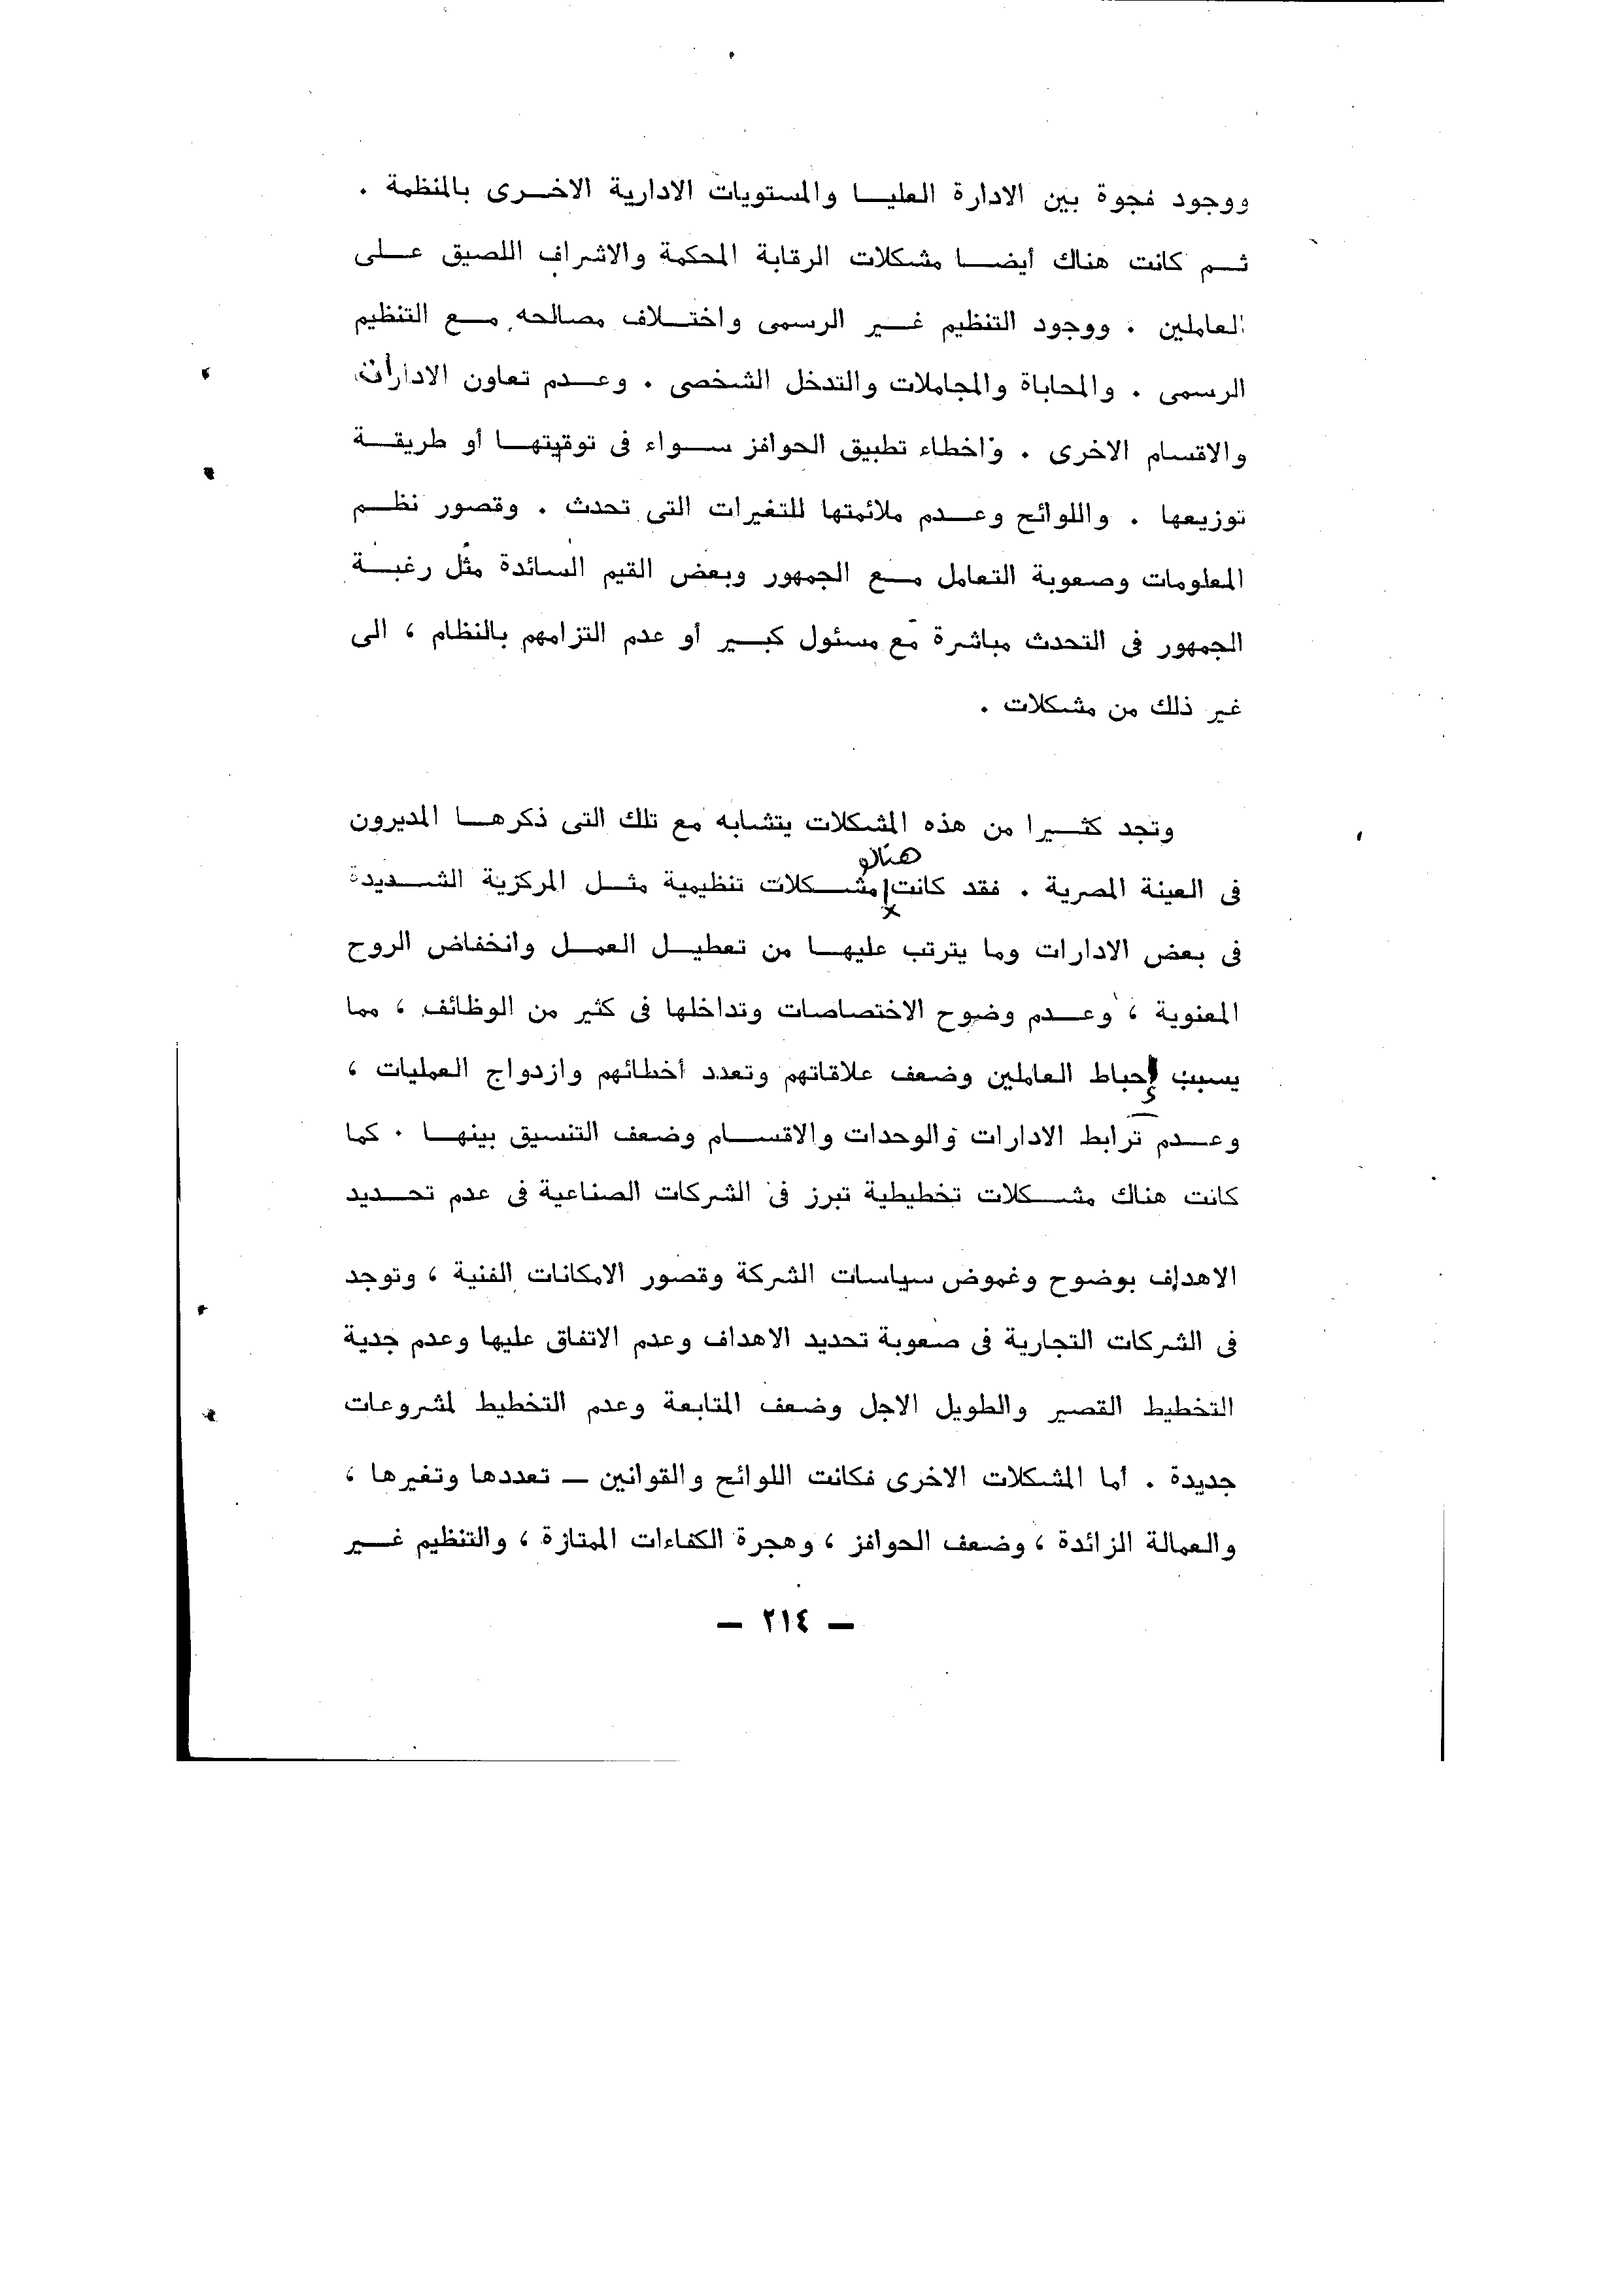 ووجود فجوة بين الادارة العليا والمستويات الادارية الاخرى بالمنظمة .
ثم كانت هناك أيضا مشكلات الرقابة المحكمة والاشراف اللصيق على
العاملين . ووجود التنظيم غير الرسمى واختلاف مصالحه مع التنظيم
الرسمى . والمحاباة والمجاملات والتدخل الشخصى . وعدم تعاون الادارات
والاقسام الاخرى . واخطاء تطبيق الحوافز سواء فى توقيتها أو طريقة
توزيعها . واللوائح وعدم ملائمتها للتغيرات التى تحدث . وقصور نظم
المعلومات وصعوبة التعامل مع الجمهور وبعض القيم السائدة مثل رغبة
الجمهور فى التحدث مباشرة مع مسئول كبير أو عدم التزامهم بالنظام ، الى
غير ذلك من مشكلات .
وتجد كثيرا من هذه المشكلات يتشابه مع تلك التى ذكرها المديرون
هناك
فى العينة المصرية . فقد كانت مشكلات تنظيمية مثل المركزية الشديدة
فى بعض الادارات وما يترتب عليها من تعطيل العمل وانخفاض الروح
المعنوية ، وعدم وضوح الاختصاصات وتداخلها فى كثير من الوظائف ، مما
يسبب إحباط العاملين وضعف علاقاتهم وتعدد أخطائهم وازدواج العمليات ،
وعدم ترابط الادارات والوحدات والاقسام وضعف التنسيق بينها . كما
كانت هناك مشكلات تخطيطية تبرز فى الشركات الصناعية فى عدم تحديد
الاهداف بوضوح وغموض سياسات الشركة وقصور الامكانات الفنية ، وتوجد
فى الشركات التجارية فى صعوبة تحديد الاهداف وعدم الاتفاق عليها وعدم جدية
التخطيط القصير والطويل الاجل وضعف المتابعة وعدم التخطيط لمشروعات
جديدة . أما المشكلات الاخرى فكانت اللوائح والقوانين — تعددها وتغيرها ،
والعمالة الزائدة ، وضعف الحوافز ، وهجرة الكفاءات الممتازة ، والتنظيم غير
— ٢١٤ —